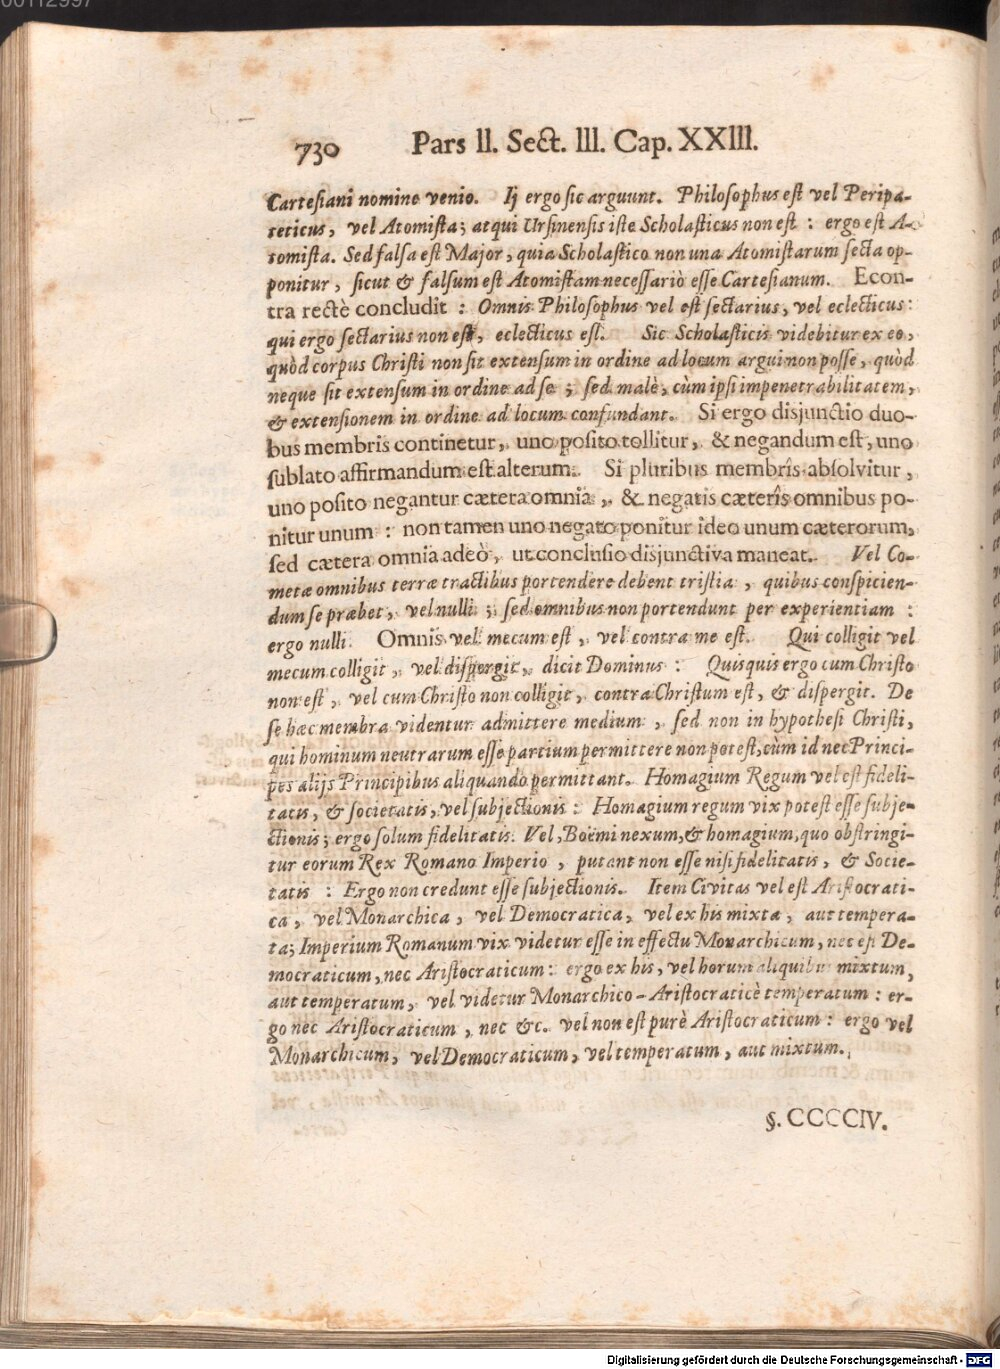 00112997
730 Pars II. Sect. III. Cap. XXIII.
Cartesiani nomine venio. Ij ergo sic arguunt. Philosophus est vel Peripa-
teticus, vel Atomista; atqui Ursinensis iste Scholasticus non est : ergo est A-
tomista. Sed falsa est Major, quia Scholastico non una Atomistarum secta op-
ponitur, sicut & falsum est Atomistam necessariò esse Cartesianum. Econ-
tra rectè concludit : Omnis Philosophus vel est sectarius, vel eclecticus:
qui ergo sectarius non est, eclecticus est. Sic Scholasticis videbitur ex eo,
quòd corpus Christi non sit extensum in ordine ad locum argui non posse, quòd
neque sit extensum in ordine ad se ; sed malè, cùm ipsi impenetrabilitatem,
& extensionem in ordine ad locum confundant. Si ergo disjunctio duo-
bus membris continetur, uno posito tollitur, & negandum est, uno
sublato affirmandum est alterum. Si pluribus membris absolvitur,
uno posito negantur cætera omnia, & negatis cæteris omnibus po-
nitur unum : non tamen uno negato ponitur ideo unum cæterorum,
sed cætera omnia adeò, ut conclusio disjunctiva maneat. Vel Co-
metæ omnibus terræ tractibus portendere debent tristia, quibus conspicien-
dum se præbet, vel nulli ; sed omnibus non portendunt per experientiam :
ergo nulli. Omnis vel mecum est, vel contra me est. Qui colligit vel
mecum colligit, vel dispergit, dicit Dominus : Quisquis ergo cum Christo
non est, vel cum Christo non colligit, contra Christum est, & dispergit. De
se hæc membra videntur admittere medium, sed non in hypothesi Christi,
qui hominum neutrarum esse partium permittere non potest, cùm id nec Princi-
pes alijs Principibus aliquando permittant. Homagium Regum vel est fideli-
tatis, & societatis, vel subjectionis : Homagium regum vix potest esse subje-
ctionis; ergo solum fidelitatis. Vel, Boëmi nexum, & homagium, quo obstringi-
tur eorum Rex Romano Imperio, putant non esse nisi fidelitatis, & Socie-
tatis : Ergo non credunt esse subjectionis. Item Civitas vel est Aristocrati-
ca, vel Monarchica, vel Democratica, vel ex his mixta, aut tempera-
ta; Imperium Romanum vix videtur esse in effectu Monarchicum, nec est De-
mocraticum, nec Aristocraticum: ergo ex his, vel horum aliquibus mixtum,
aut temperatum, vel videtur Monarchico-Aristocraticè temperatum : er-
go nec Aristocraticum, nec &c. vel non est purè Aristocraticum : ergo vel
Monarchicum, vel Democraticum, vel temperatum, aut mixtum.
§. CCCCIV.
Digitalisierung gefördert durch die Deutsche Forschungsgemeinschaft - DFG